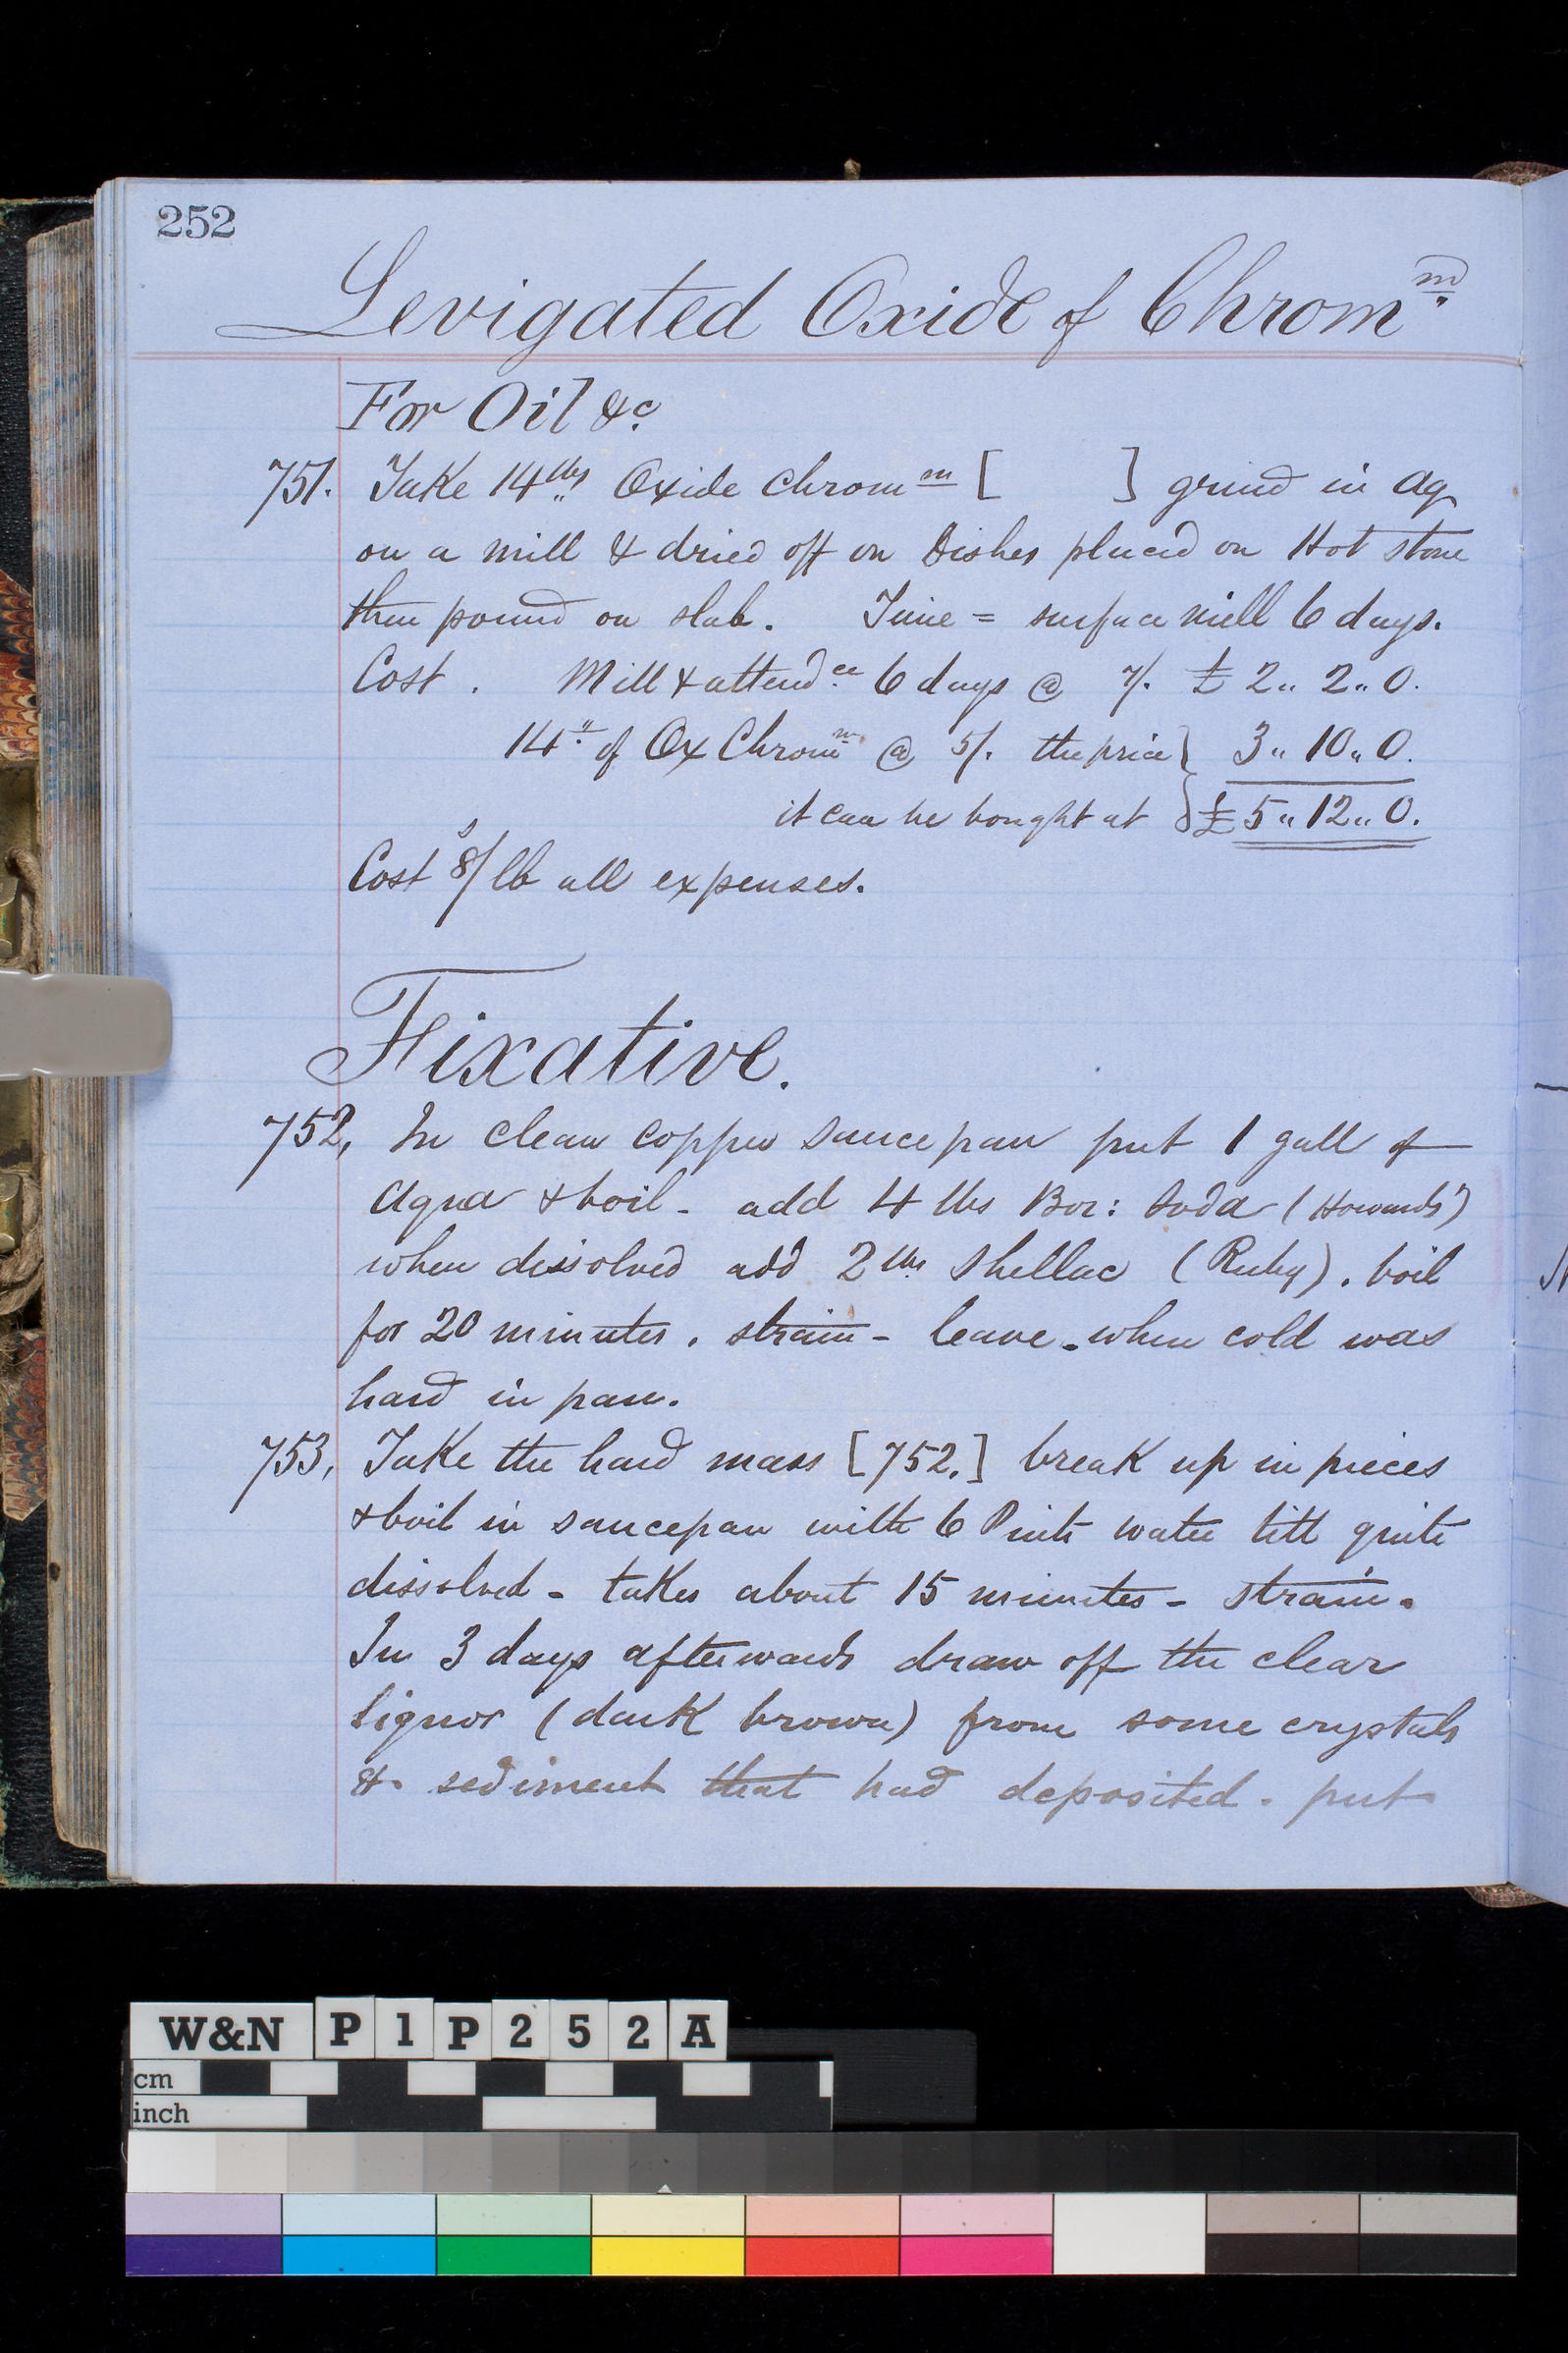 252
Levigated Oxide of Chrom.m
For Oil &c.
751. Take 14 lbs Oxide Chrom m [ ] grind in aq
on a mill & dried off on Dishes placed on Hot stone
then pound on slab. Time = surface mill 6 days.
Cost. Mill & attendce 6 days @ 7/. £ 2.. 2.. 0.
14 # of Ox Chromm @ 5/. the price } 3.. 10.. 0.
it can be bought at } £ 5.. 12.. 0.
Cost 8s/ lb all expenses.
Fixative.
752, In clean copper saucepan put 1 gall of
Aqua & boil - add 4 lbs Bor: Soda (Howards')
when dissolved add 2 lbs Shellac (Ruby). boil
for 20 minutes. strain - leave. when cold was
hard in pan.
753, Take the hard mass [752.] break up in pieces
& boil in saucepan with 6 Pints water till quite
dissolved - takes about 15 minutes - strain.
In 3 days afterwards draw off the clear
liquor (dark brown) from some crystals
&. sediment that had deposited. put
W&N P 1 P 2 5 2 A
cm
inch